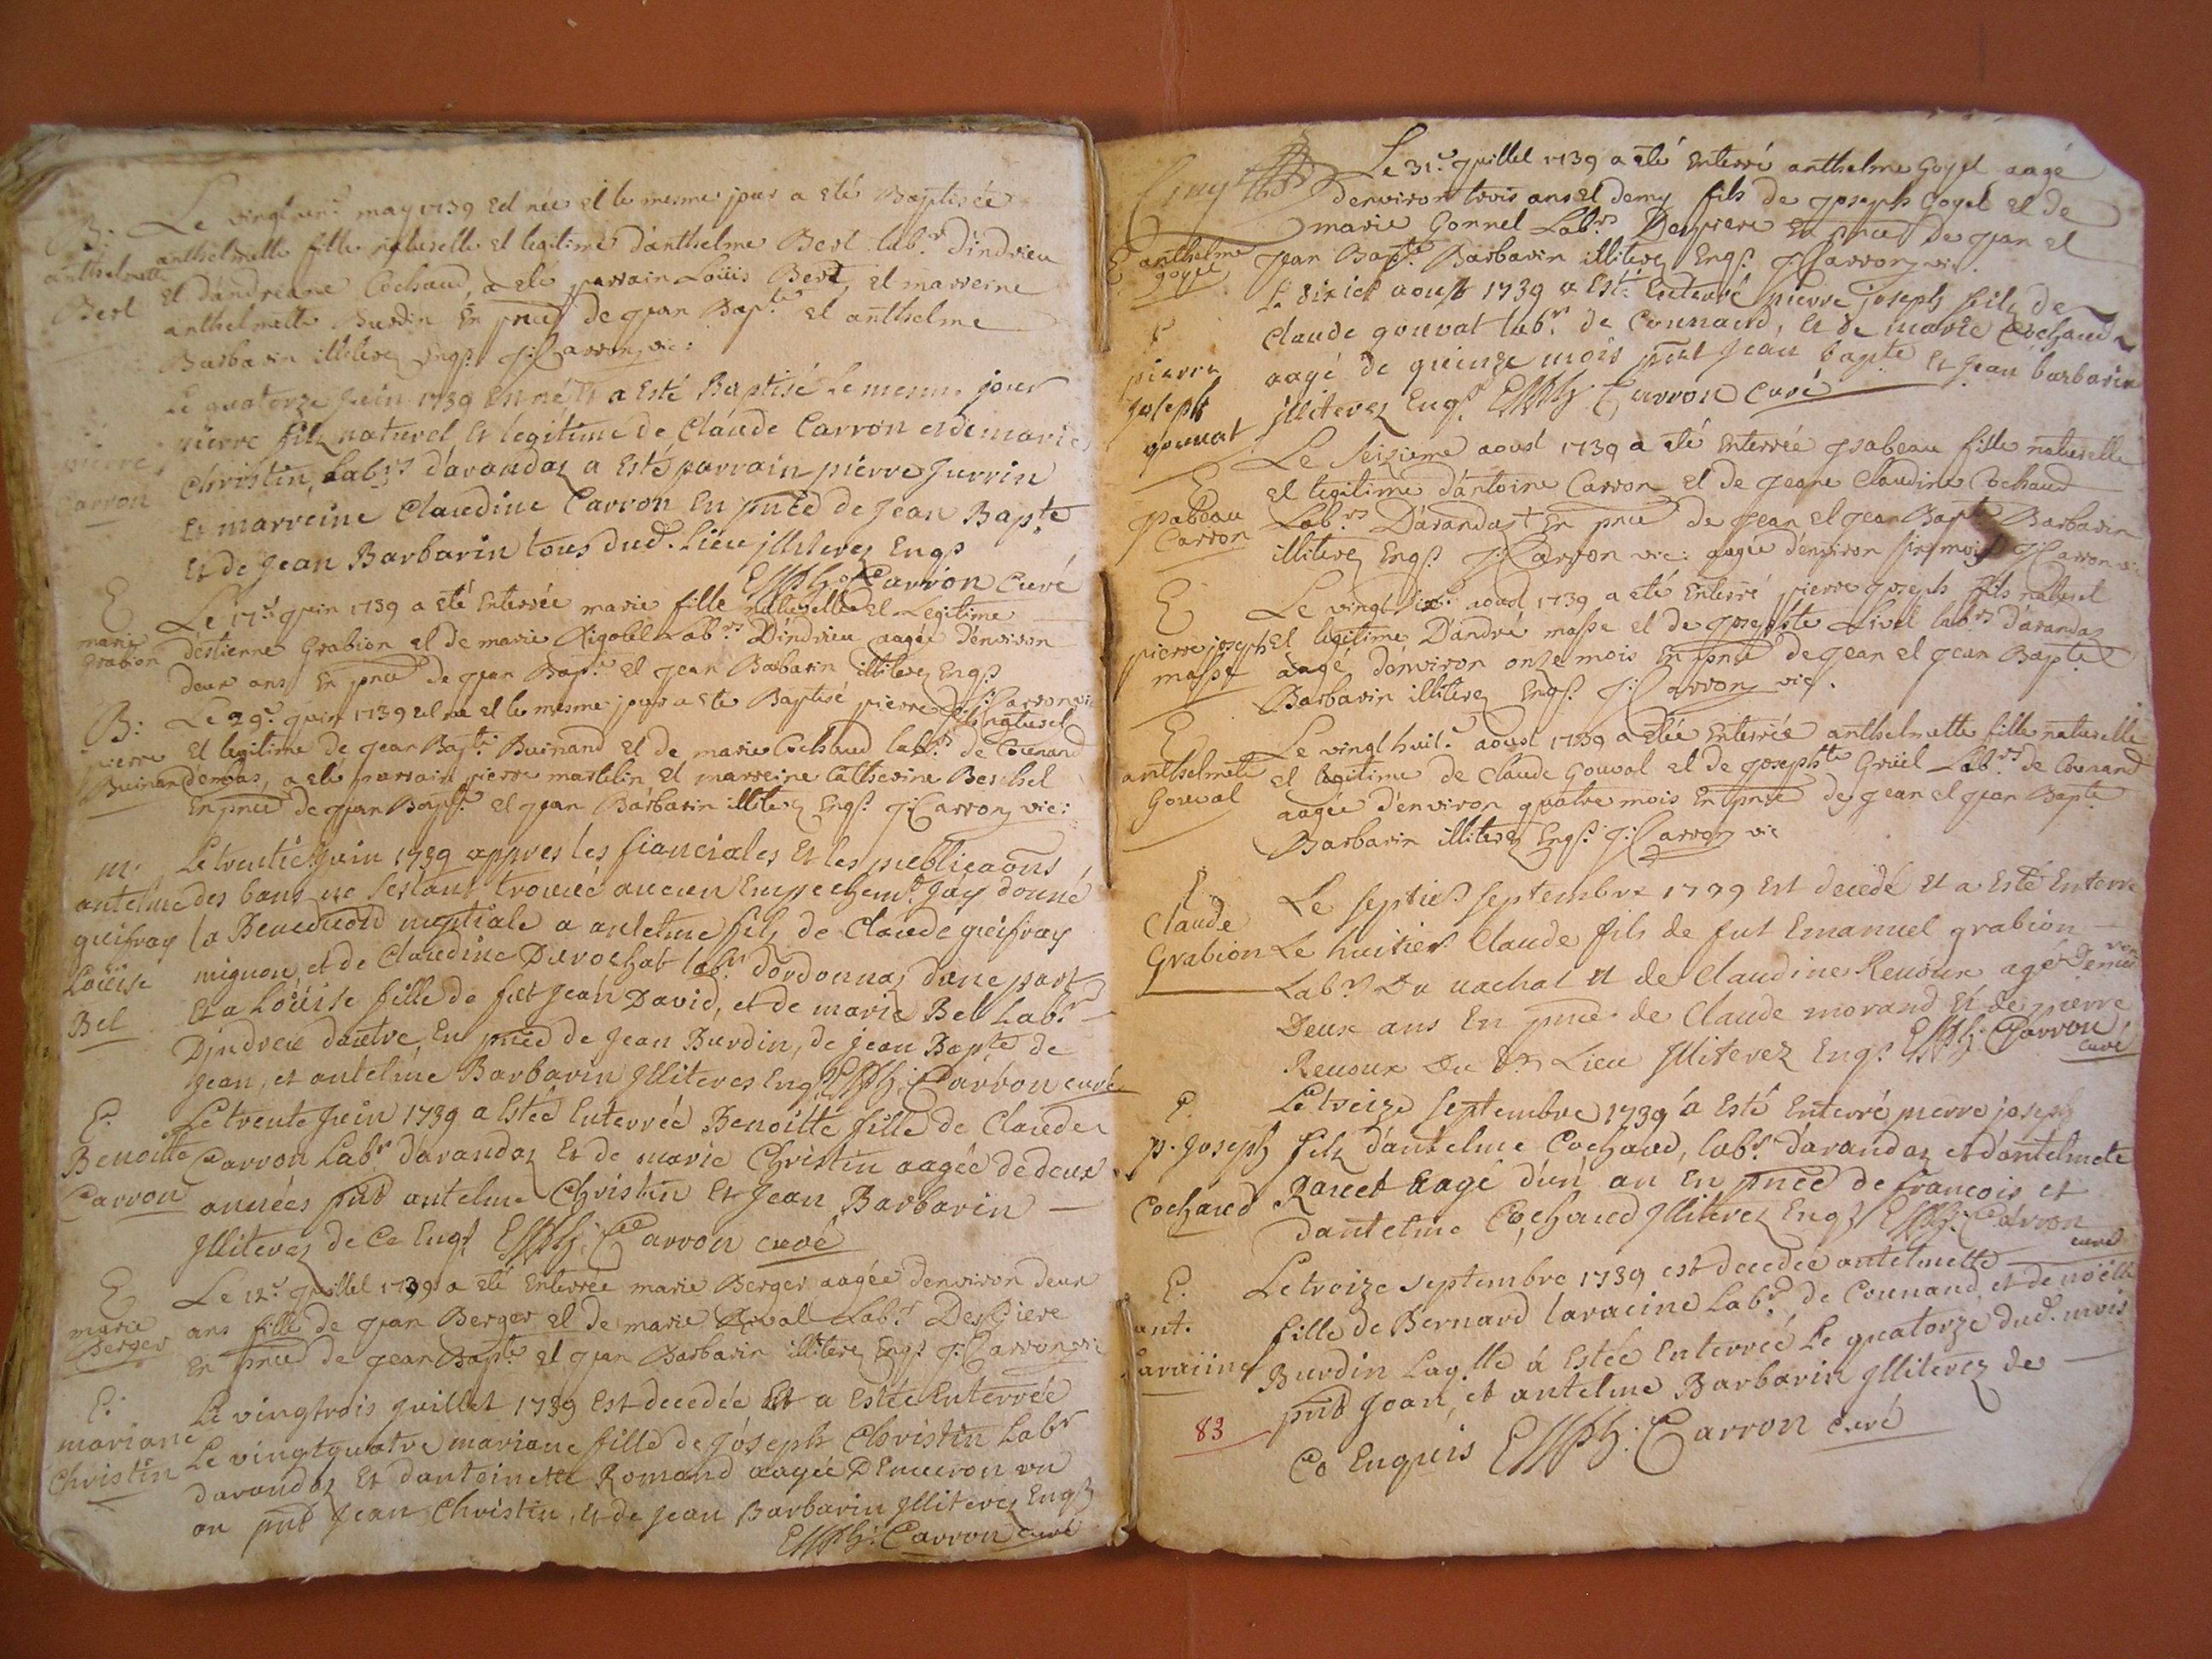 B.
anthelmette
Bert
Le vingt may 1739 est née et le mesme jour a eté Baptisée
anthelmette fille naturelle et legitime d'anthelme Bert lab.r d'indrieu
et d'andréane Cochaud, a eté parrain Loüis Bert, et marreine
anthelmette Burdin En pnce de jean Bap.te et anthelme
Barbarin illiterez Enq.s j: Carron vic:
pierre
Carron
Le quatorze juin 1739 Est né Et a Esté Baptisé Le mesme jour
pierre filz naturel Et légitime de Claude Carron et de marie
Christin, Lab.rs d'arandaz a Esté parrain pierre Jurrin
Et marreine Claudine Carron En pnce de Jean Bap.te
Et de Jean Barbarin tous dud. Lieu jlliterez Enq.s
Carron Curé
E
marie
Grabion
Le 17.e juin 1739 a eté Enterrée marie fille naturelle et Legitime
d'estienne Grabion et de marie Rigollet Lab.rs D'indrieu aagée d'environ
deux ans En pnce de jean Bap.te et jean Barbarin illiterez Enq.s
j: Carron vic
B:
pierre
Buinand
Le 29.e juin 1739 est né et le mesme jour a eté Baptisé pierre fils naturel
et legitime de jean Bap.te Buinand et de marie Cochaud lab.rs de Counand
dembas, a eté parrain pierre martelin et marreine Catherine Berchet
En pnce de jean Bap.te et jean Barbarin illiterez Enq.s j: Carron vic:
m.
antelme
guifray
Loüise
Bel
Le trentie juin 1739 appres les fiancialles Et les publicaons
des bans ne sestant trouvé aucun Empechem.t jay donné
la Benediction nuptiale a antelme filz de Claude guifray
mignon, et de Claudine Durochat lab.r dordonnaz dune part
Et a Loüise fille de fut Jean David, et de marie Bel Lab.rs
D'jndrieu dautre, En pnce de Jean Burdin, de Jean Bapte de
Jean, et antelme Barbarin Jlliteres Enq.s Carron curé
E.
Benoitte
Carron
Le trente Juin 1739 a Estée Enterrée Benoitte fille de Claude
Carron Lab.r d'arandaz Et de marie Christin aagée de deux
années pnt antelme Christin Et Jean Barbarin
Jlliterez de Ce Enq.s Carron curé
E
marie
Berger
Le 12.e juillet 1739 a eté Enterrée marie Berger aagée denviron deux
ans fille de jean Berger et de marie Rival Lab.rs Despiere
En pnce de jean Bap.te et jean Barbarin illiterez Enq.s j: Carron vic
E.
mariane
Christin
Le vingtrois juillet 1739 Est decedée Et a Estée Enterrée
Le vingtquatre mariane fille de Joseph Christin Lab.r
darandaz Et dantoinette Romand aagée D'Enuiron un
an pnt Jean Christin, Et de Jean Barbarin Jlliterez Enq.s
Carron curé
E anthelme
goyet
Le 31.e juillet 1739 a eté Enterré anthelme Goyet aagé
d'environ trois ans et demy fils de joseph Goyet et de
marie Gonnet Lab.rs Despiere En pnce de jean et
jean Bap.te Barbarin illiterez Enq.s j: Carron vic.
E
pierre
Joseph
gouvat
Le dixie aoust 1739 a Esté Enterré pierre joseph filz de
Claude gouvat lab.r de Counand, Et de marie Cochaud
aagé de quinze mois pnt Jean bapte Et Jean barbarin
Jlliterez Enq.s Carron Curé
E
jsabeau
Carron
Le Seizieme aoust 1739 a eté Enterrée jsabeau fille naturelle
et legitime d'antoine Carron et de jeane Claudine Cochaud
Lab.rs D'arandaz + En pnce de jean et jean Bap.te Barbarin
illiterez Enq.s j: Carron vic: aagée d'environ six mois j: Carron vic
E
pierre joseph
masse
Le vingt aoust 1739 a eté Enterré pierre joseph fils naturel
et legitime D'andré masse et de josephte Livet lab.rs d'arandaz
aagé d'environ onze mois En pnce de jean et jean Bap.te
Barbarin illiterez Enq.s j: Carron vic.
E
anthelmette
Gouvat
Le vingt huit.e aoust 1739 a etée Enterrée anthelmette fille naturelle
et legitime de Claude Gouvat et de josephte Grüel Lab.rs de Counand
aagée d'environ quatre mois En pnce de jean et jean Bap.te
Barbarin illiterez Enq.s j: Carron vic
E
Claude
Grabion
Le septie septembre 1739 Est decedé Et a Esté Enterré
Le huitie Claude fils de fut Emanuel grabion
Lab.r Du vachat Et de Claudine Revoux agé Denviron
Deux ans En pnce de Claude morand Et de pierre
Revoux Du d. Lieu Jlliterez Enq.s Carron
curé
E.
p. Joseph
Cochaud
Le treize septembre 1739 a Esté Enterré pierre joseph
filz d'antelme Cochaud, lab.r d'arandaz et d'antelmete
Raved aagé d'un an En pnce de francois et
dantelme Cochaud Jlliterez Enq.s Carron
curé
E.
ant.
Laraiine
Le treize septembre 1739 est decedée antelmette
fille de Bernard laracine Lab.r de Counand, et de noëlle
Burdin Laq.lle a Estée Enterrée Le quatorze dud. mois
pnt Jean, et antelme Barbarin Jlliterez de
Ce Enquis Carron Curé
83